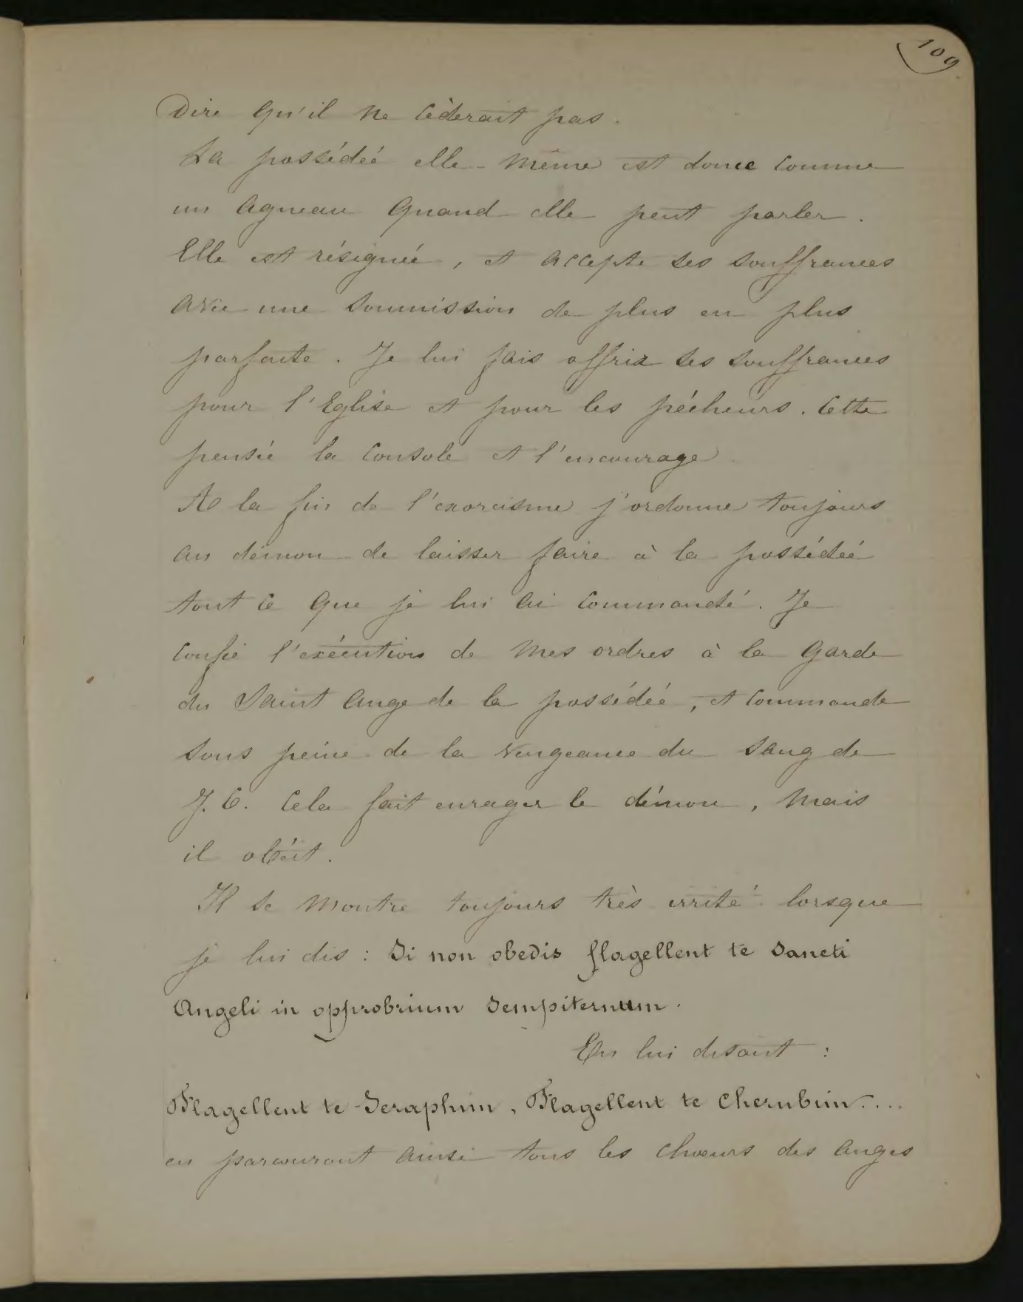 109
Dire qu'il ne cèderait pas.
La possédée elle-même est douce comme
un agneau quand elle peut parler.
Elle est résignée, et accepte ses souffrances
avec une soumission de plus en plus
parfaite. Je lui fais offrir ses souffrances
pour l'Eglise et pour les pécheurs. Cette
pensée la console et l'encourage
A la fin de l'exorcisme j'ordonne toujours
au démon de laisser faire à la possédée
tout ce que je lui ai commandé. Je
confie l'exécution de mes ordres à la garde
du Saint Ange de la possédée, et commande
sous peine de la vengeance du sang de
J. C. Cela fait enrager le démon, mais
il obéit.
Il se montre toujours très irrité lorsque
je lui dis : Si non obedis flagellent te Sancti
Angeli in opprobrium Sempiternum.
En lui disant :
Flagellent te Seraphim, Flagellent te Cherubim....
en parcourant ainsi tous les choeurs des anges